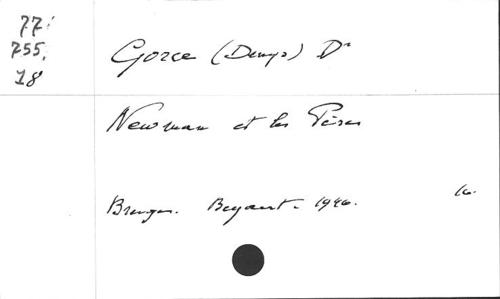 77.
755.
18
Gorce (Denys) Dr
Newman et les Pères
Bruges. Beyaert. 1946. 16.